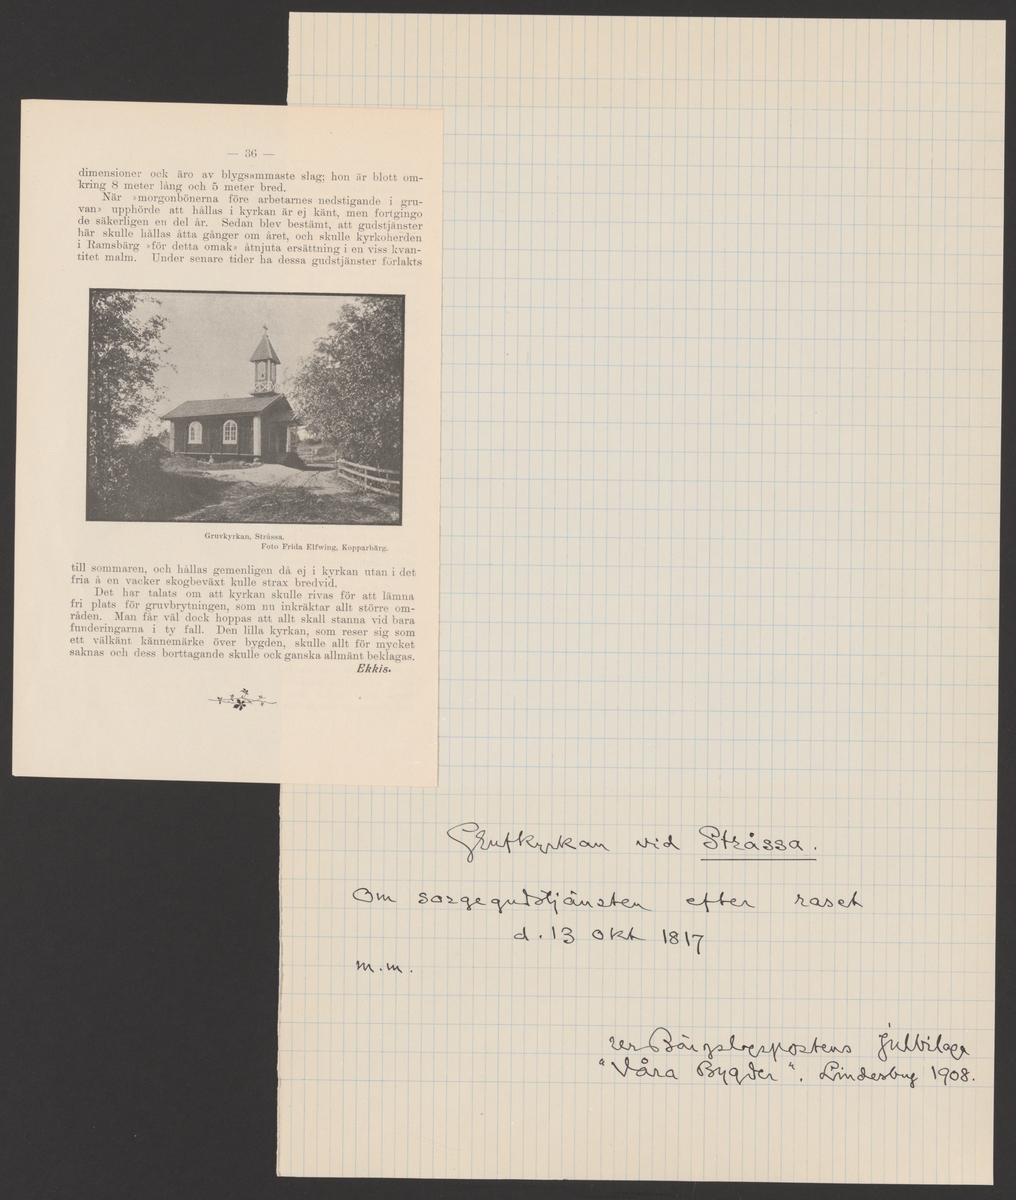 — 36 —
dimensioner ock äro av blygsammaste slag; hon är blott om-
kring 8 meter lång och 5 meter bred.
När »morgonbönerna före arbetarnes nedstigande i gru-
van» upphörde att hållas i kyrkan är ej känt, men fortgingo
de säkerligen en del år. Sedan blev bestämt, att gudstjänster
här skulle hållas åtta gånger om året, och skulle kyrkoherden
i Ramsbärg »för detta omak» åtnjuta ersättning i en viss kvan-
titet malm. Under senare tider ha dessa gudstjänster förlakts
Gruvkyrkan, Stråssa.
Foto Frida Elfwing, Kopparbärg.
till sommaren, och hållas gemenligen då ej i kyrkan utan i det
fria å en vacker skogbeväxt kulle strax bredvid.
Det har talats om att kyrkan skulle rivas för att lämna
fri plats för gruvbrytningen, som nu inkräktar allt större om-
råden. Man får väl dock hoppas att allt skall stanna vid bara
funderingarna i ty fall. Den lilla kyrkan, som reser sig som
ett välkänt kännemärke över bygden, skulle allt för mycket
saknas och dess borttagande skulle ock ganska allmänt beklagas.
Ekkis.
Grufkyrkan vid Stråssa.
Om sorgegudstjänsten efter raset
d. 13 okt 1817
m.m.
Bärgslagspostens Julbilaga
"Våra Bygder". Lindesberg 1908.